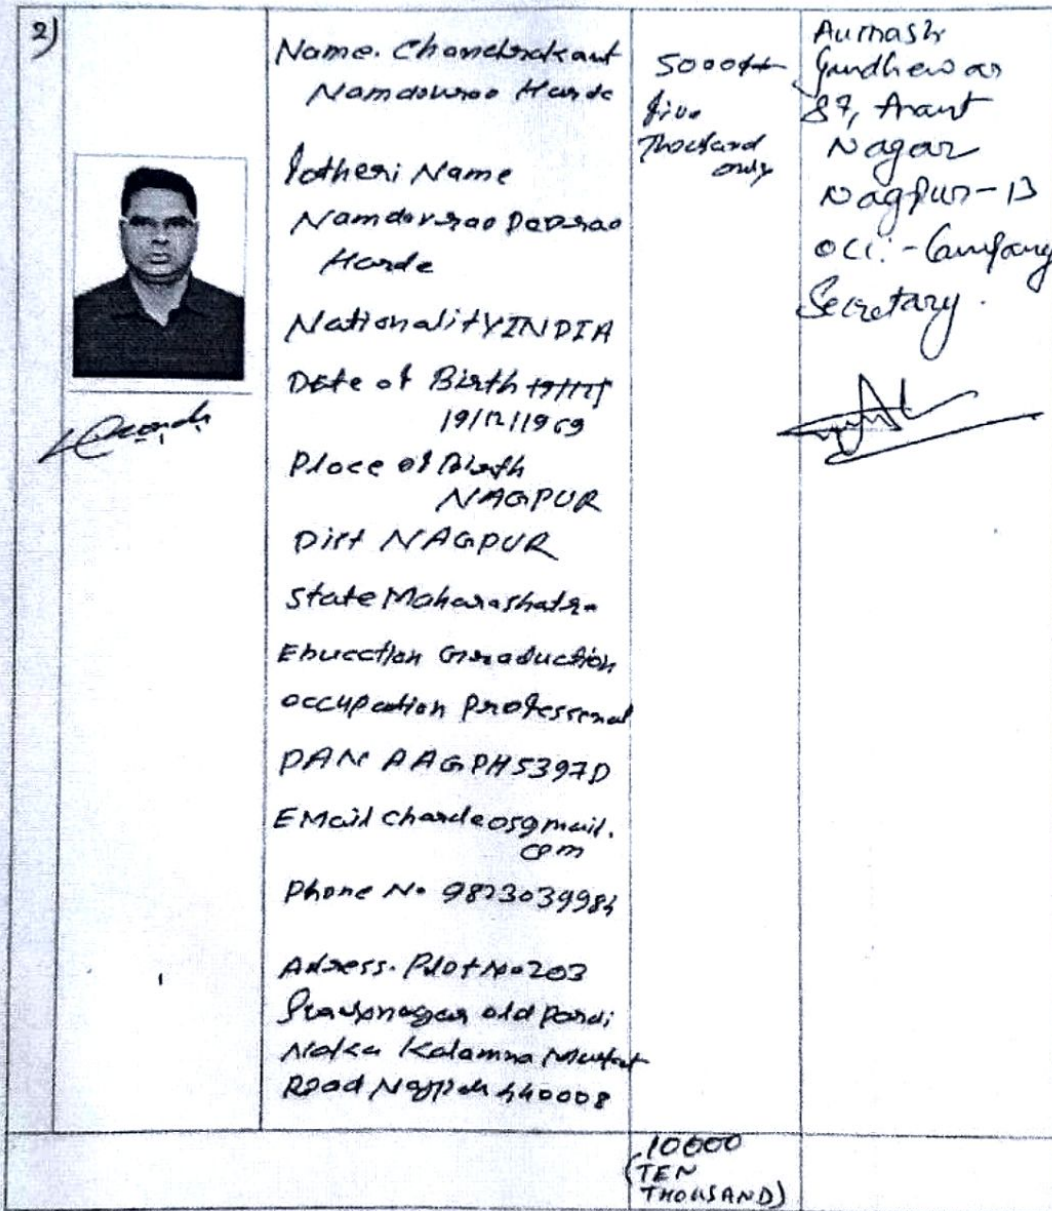 2)
Name. Chandrakant
Namdevrao Harde
Fatheri Name
Namdevrao Devrao
Harde
Nationality INDIA
Date of Birth
19/12/1969
Place of Birth
NAGPUR
Dist NAGPUR
State Maharashatra
Education Graduction
occupation Professenal
PAN AAGPH5397D
EMail charde05gmail.
com
Phone No 9823039984
Adress. Plot No 203
old Pardi
Naka Kalamna Market
Road Nagpur 440008
5000
five
Thousand
only
Gundhewar
87, Anant
Nagar
Nagpur-13
occ:- Company
Secretary.
10000
(TEN
THOUSAND)